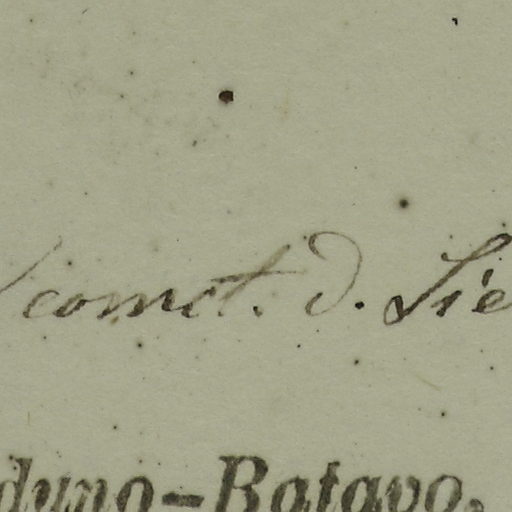 comct. d. Sie
duno-Batavo,